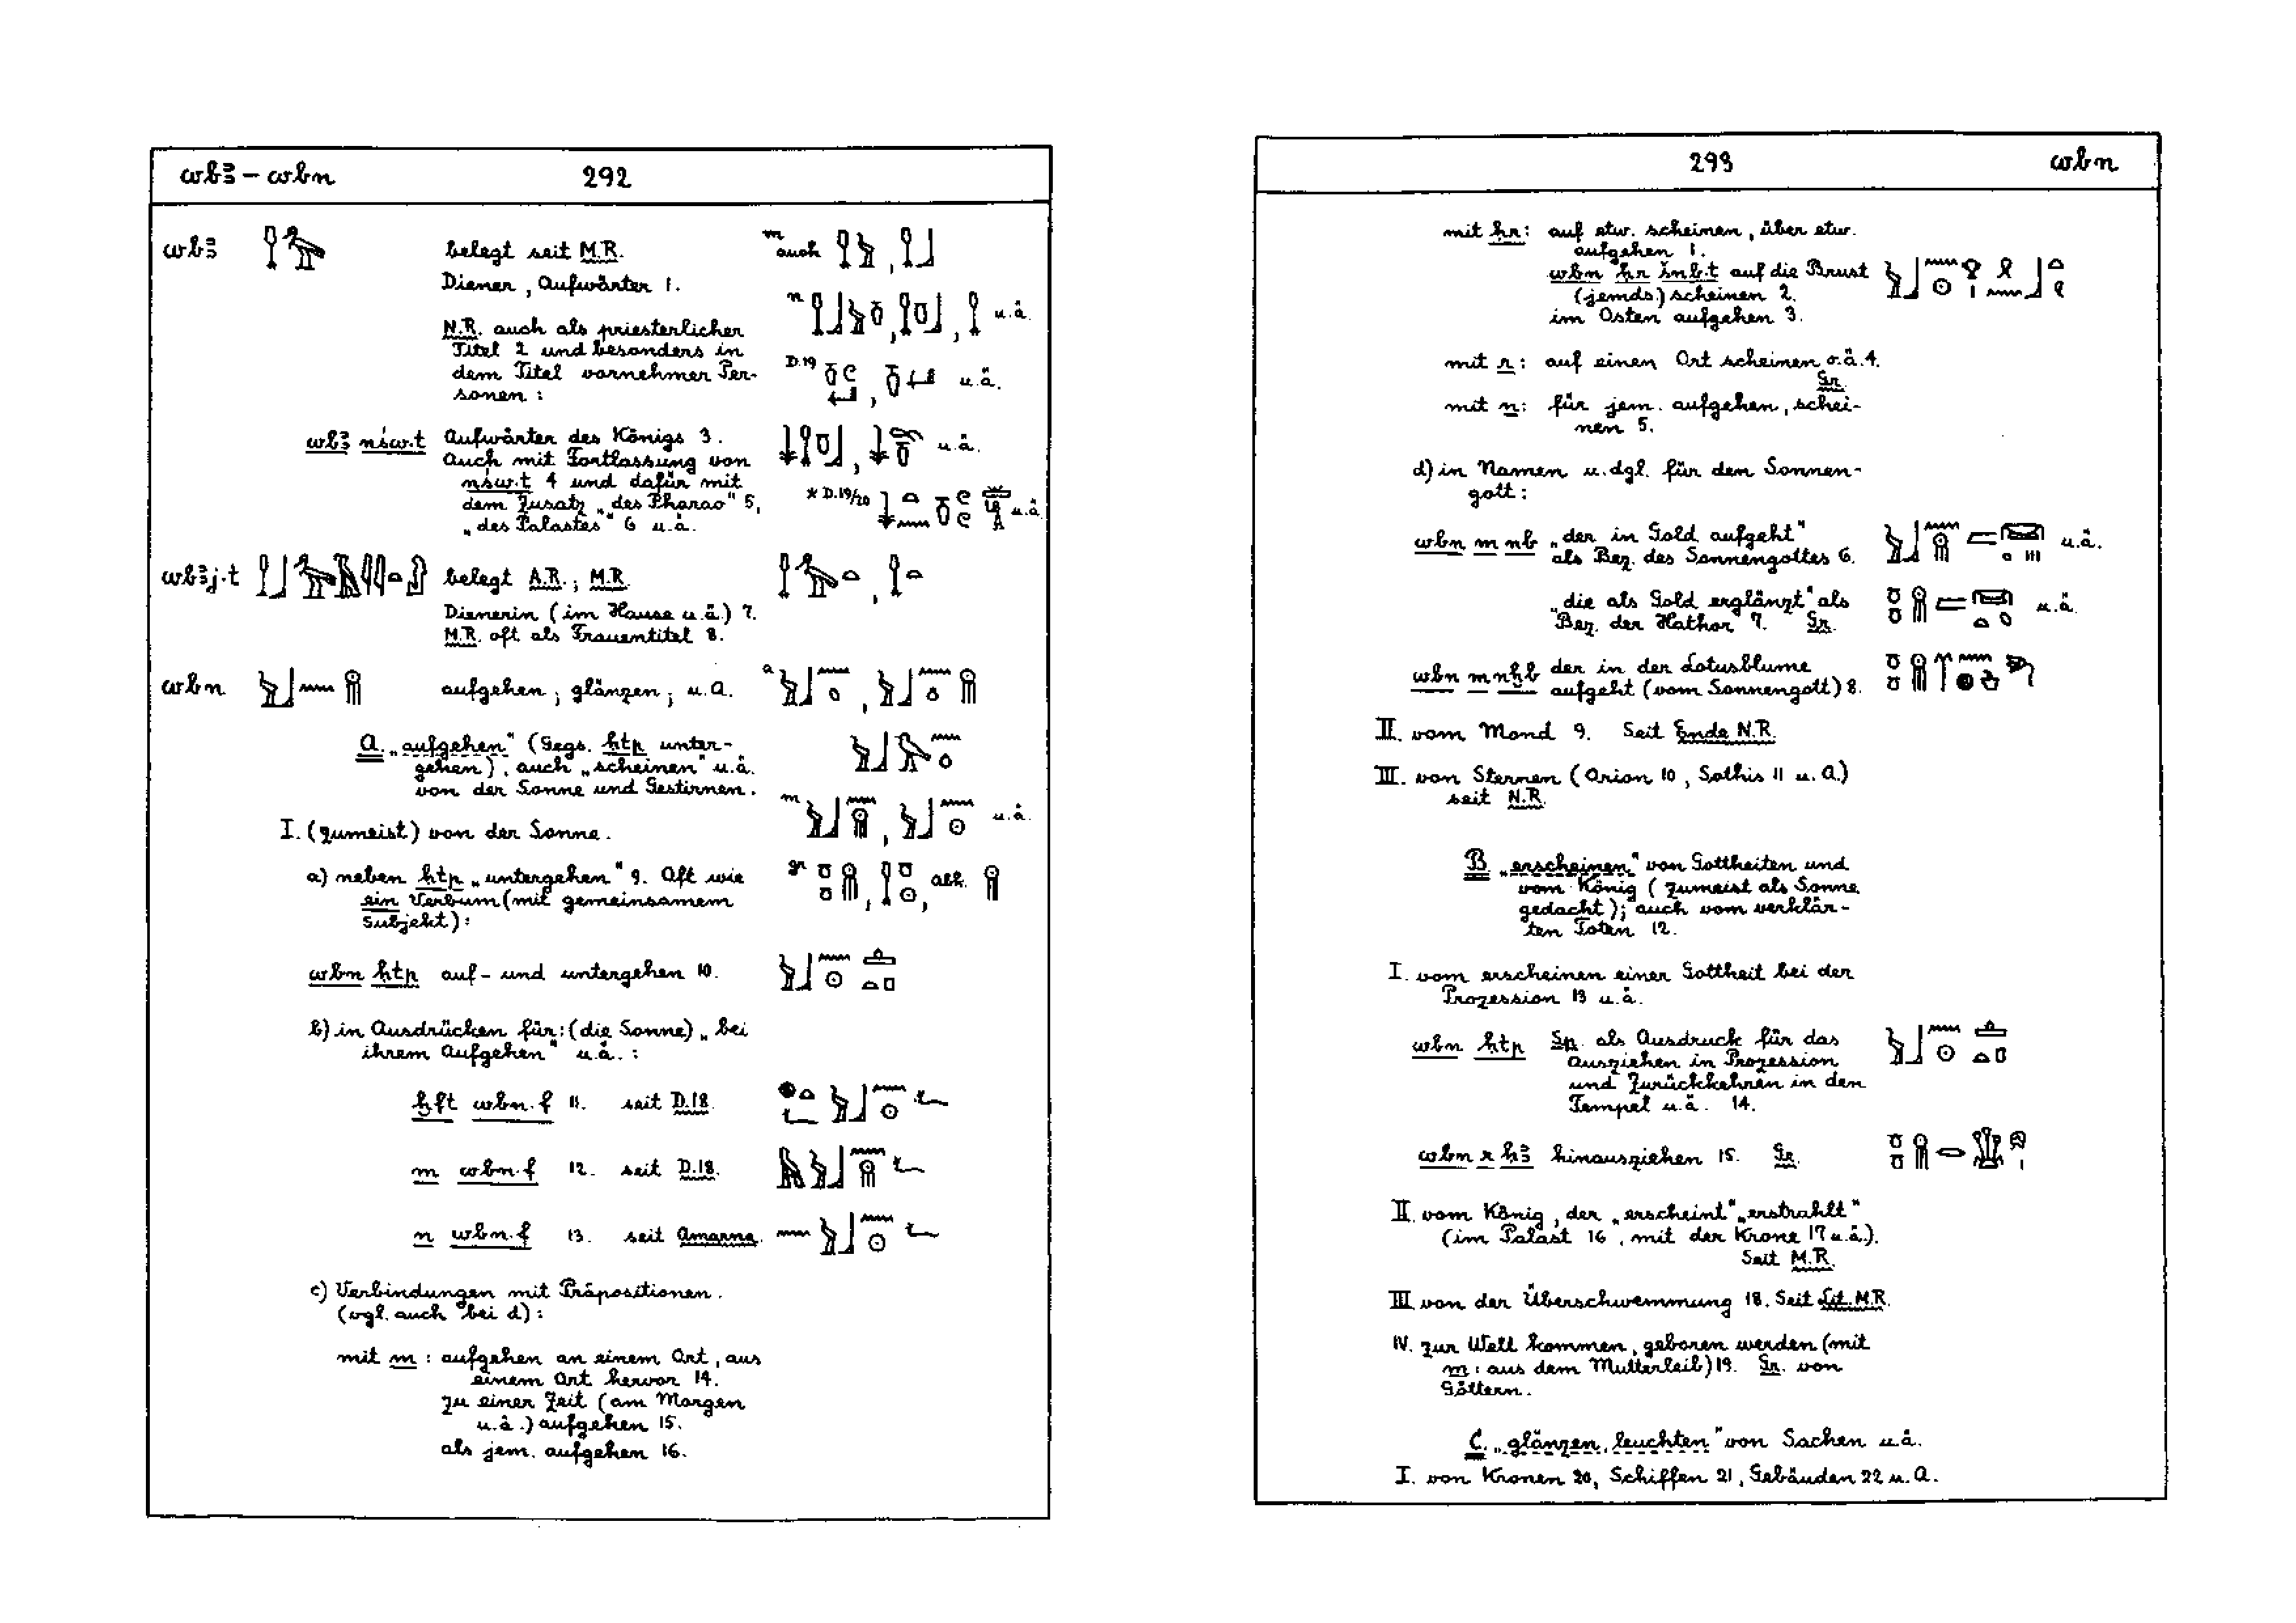 wbꜣ – wbn 292
wbꜣ belegt seit M.R.
auch
Diener, Aufwärter 1.
N.R. auch als priesterlicher
Titel 2 und besonders in
dem Titel vornehmer Per-
sonen:
u.ä.
D.19 u.ä.
wbꜣ nśw.t Aufwärter des Königs 3.
Auch mit Fortlassung von
nśw.t 4 und dafür mit
dem Zusatz „des Pharao" 5,
„des Palastes" 6 u.ä.
u.ä.
* D.19/20 u.ä.
wbꜣj.t belegt A.R.; M.R.
Dienerin (im Hause u.ä.) 7.
M.R. oft als Frauentitel 8.
wbn aufgehen; glänzen; u.A.
A. „aufgehen" (Gegs. ḥtp unter-
gehen), auch „scheinen" u.ä.
von der Sonne und Gestirnen.
u.ä.
I. (zumeist) von der Sonne.
a) neben ḥtp „untergehen" 9. Oft wie
ein Verbum (mit gemeinsamem
Subjekt):
gr abk.
wbn ḥtp auf- und untergehen 10.
b) in Ausdrücken für: (die Sonne) „bei
ihrem Aufgehen" u.ä.:
ḫft wbn.f 11. seit D.18.
m wbn.f 12. seit D.18.
n wbn.f 13. seit Amarna.
c) Verbindungen mit Präpositionen.
(vgl. auch bei d):
mit m: aufgehen an einem Ort, aus
einem Ort hervor 14.
zu einer Zeit (am Morgen
u.ä.) aufgehen 15.
als jem. aufgehen 16.
293 wbn
mit ḥr: auf etw. scheinen, über etw.
aufgehen 1.
wbn ḥr šnb.t auf die Brust
(jemds.) scheinen 2.
im Osten aufgehen 3.
mit r: auf einen Ort scheinen o.ä. 4.
Gr.
mit n: für jem. aufgehen, schei-
nen 5.
d) in Namen u. dgl. für den Sonnen-
gott:
wbn m nb „der in Gold aufgeht"
als Bez. des Sonnengottes 6.
u.ä.
„die als Gold erglänzt" als
Bez. der Hathor 7. Gr.
u.ä.
wbn m nḥb der in der Lotusblume
aufgeht (vom Sonnengott) 8.
II. vom Mond 9. Seit Ende N.R.
III. von Sternen (Orion 10, Sothis 11 u.A.)
seit N.R.
B. „erscheinen" von Gottheiten und
vom König (zumeist als Sonne
gedacht); auch vom verklär-
ten Toten 12.
I. vom erscheinen einer Gottheit bei der
Prozession 13 u.ä.
wbn ḥtp Sp. als Ausdruck für das
Ausziehen in Prozession
und Zurückkehren in den
Tempel u.ä. 14.
wbn r ḥꜣ hinausziehen 15. Gr.
II. vom König, der „erscheint" „erstrahlt"
(im Palast 16, mit der Krone 17 u.ä.).
Seit M.R.
III. von der Überschwemmung 18. Seit Lit. M.R.
IV. zur Welt kommen, geboren werden (mit
m: aus dem Mutterleib) 19. Gr. von
Göttern.
C. „glänzen, leuchten" von Sachen u.ä.
I. von Kronen 20, Schiffen 21, Gebäuden 22 u.A.